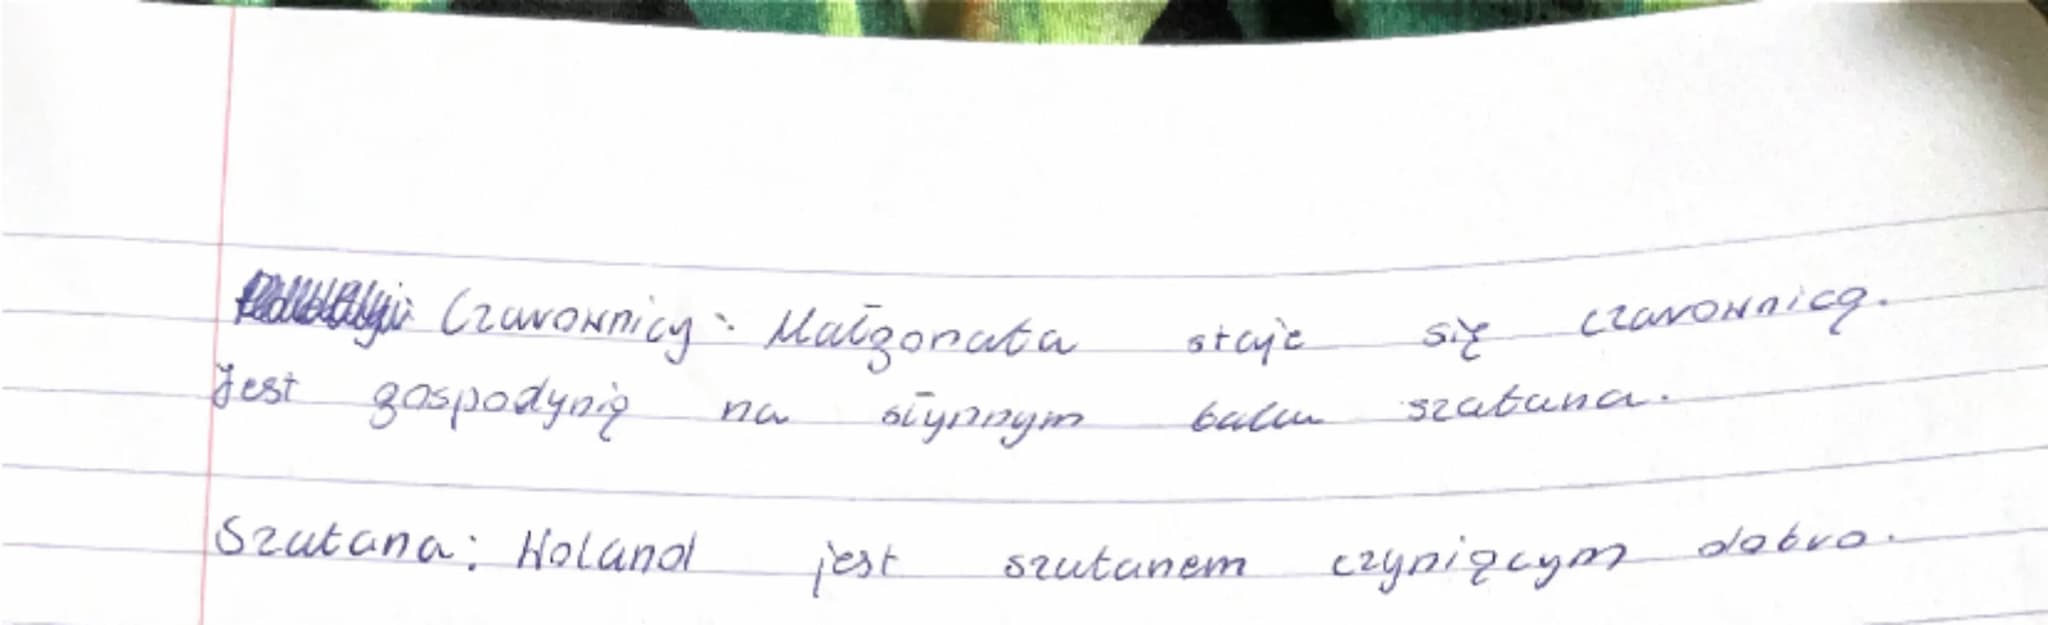 Czarownicy: Małgorzata staje się czarownicą.
Jest gospodynią na słynnym balu szatana.
Szatana: Woland jest szatanem czyniącym dobro.